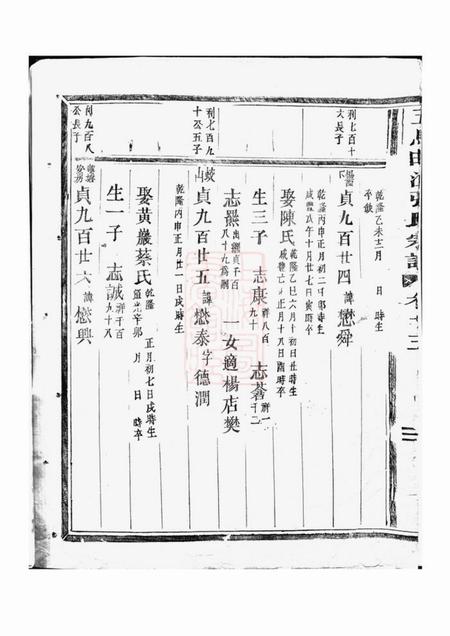 氏宗譜
乾隆乙未十二月 日 時生
平 歿
利七百十
大長子
貞九百廿四 諱懋舜
乾隆丙申正月初二日卯時生
咸豐 年十月廿七日寅時卒
娶陳氏 乾隆乙巳六月十初日丑時生
咸豐 亥正月十八日酉時卒
生三子 志康 行八百九十 志蒼 行一千二
志熙 出繼貞千百八十九為嗣 一女適楊店樊
利七百九
十公五子
貞九百廿五 諱懋泰字德潤
乾隆丙申正月廿一日戌時生
娶黃巖蔡氏 乾隆 正月初七日戌時生
道光辛卯 月 日 時卒
生一子 志誠 行千百九十八
利九百八
公長子
貞九百廿六 諱懋興